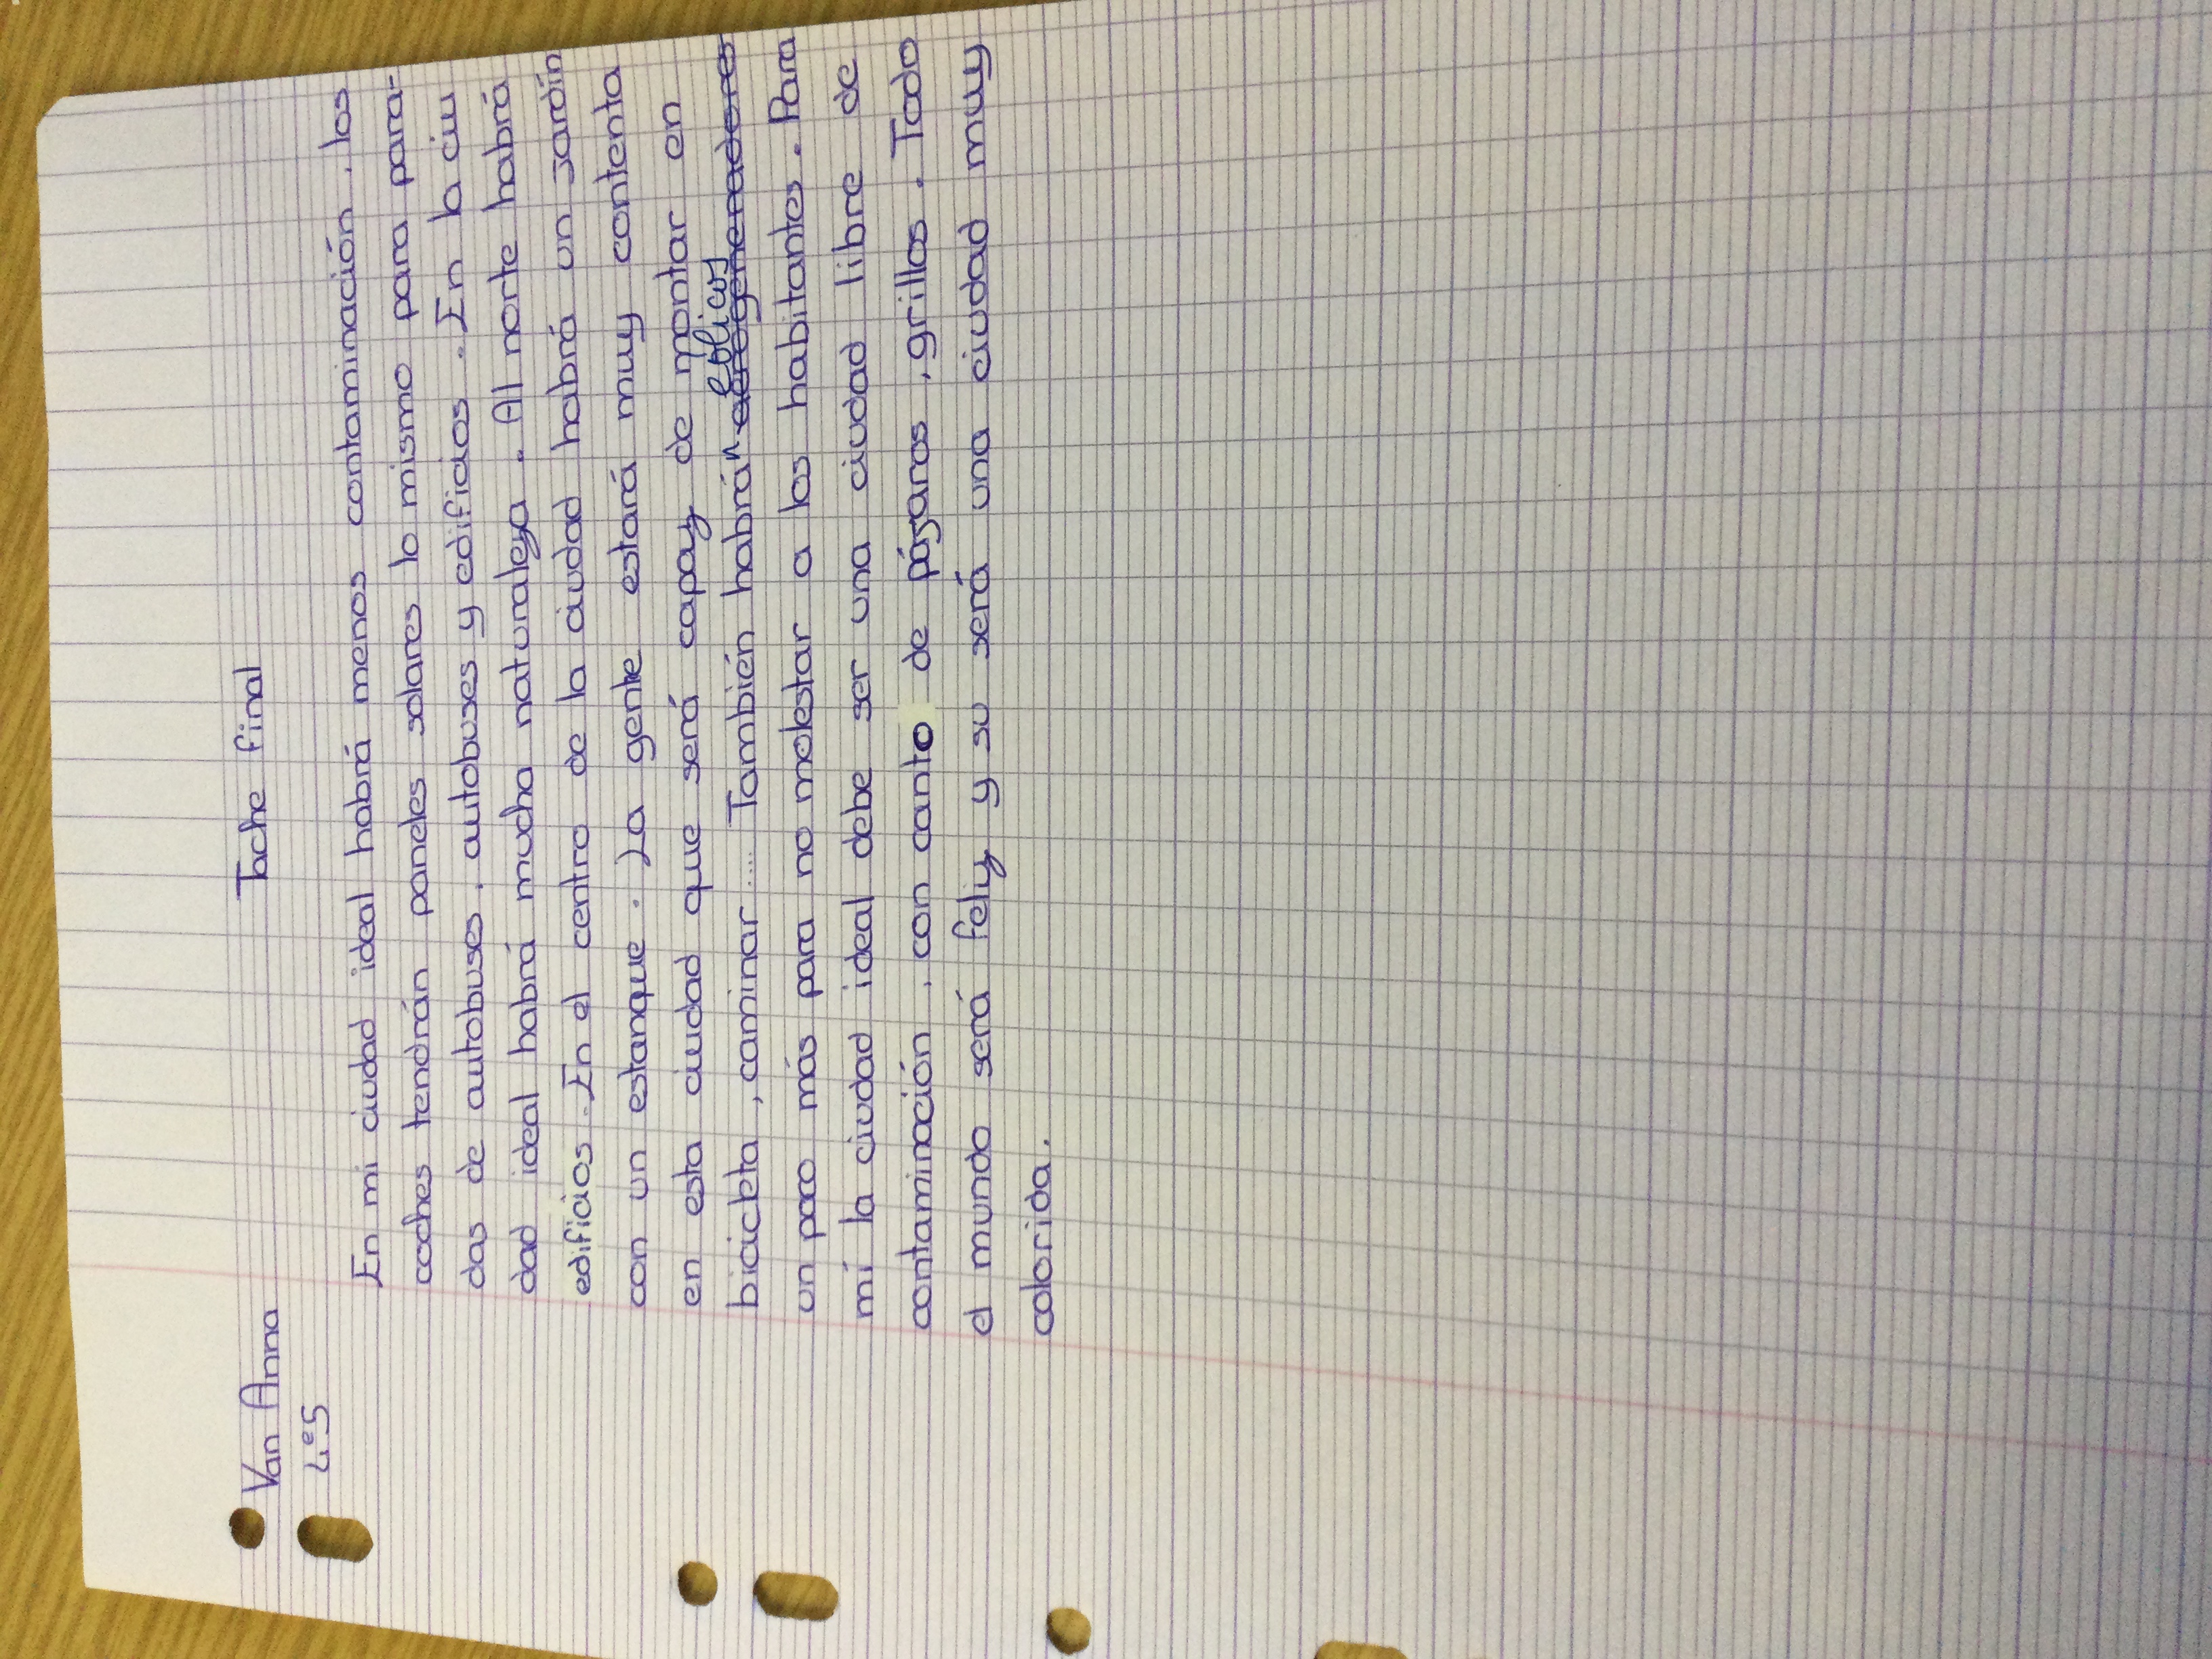 Van Anna
4e5
Tache final
En mi ciudad ideal habrá menos contaminación, los
coches tendrán paneles solares lo mismo para para-
das de autobuses, autobuses y edificios. En la ciu
dad ideal habrá mucha naturaleza. Al norte habrá
edificios. En el centro de la ciudad habrá un jardín
con un estanque. La gente estará muy contenta
en esta ciudad que será capaz de montar en
bicicleta, caminar.... También habrán aerogeneradores eólicos
un poco más para no molestar a los habitantes. Para
mí la ciudad ideal debe ser una ciudad libre de
contaminación, con canto de pájaros, grillos. Todo
el mundo será feliz y su será una ciudad muy
colorida.